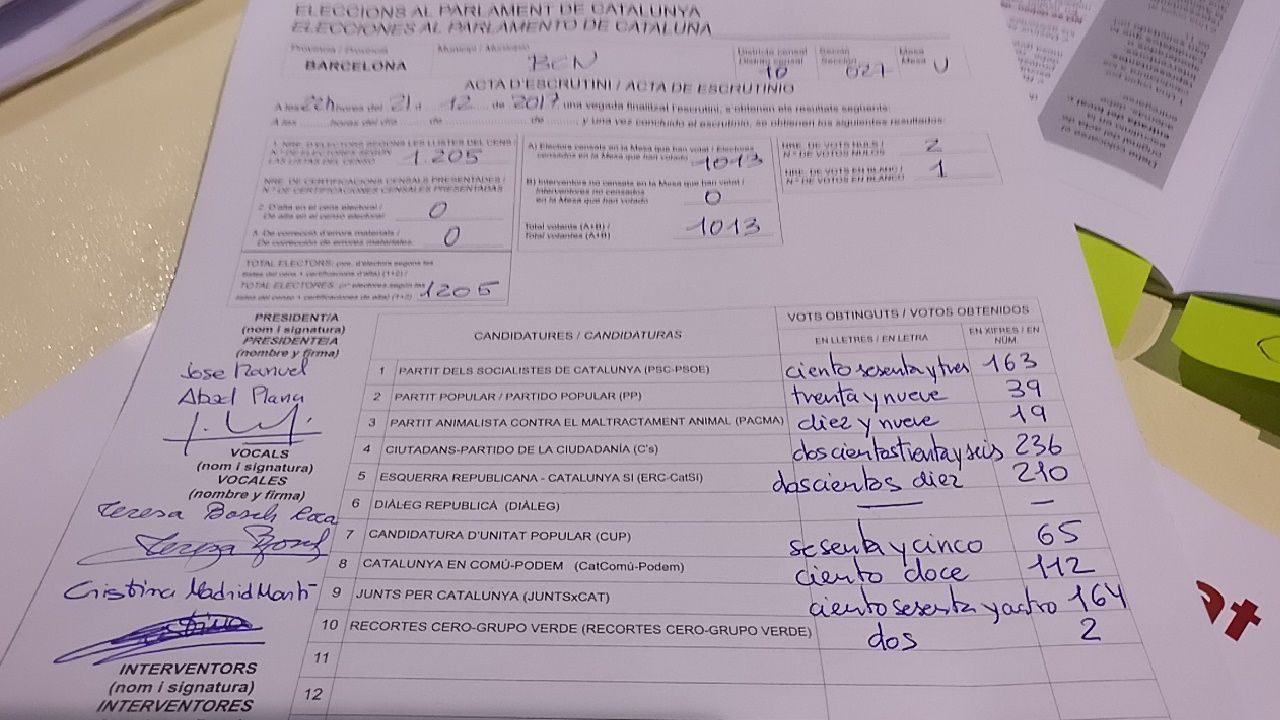 ELECCIONS AL PARLAMENT DE CATALUNYA
ELECCIONES AL PARLAMENTO DE CATALUÑA
Província / Provincia
BARCELONA
Municipi / Municipio
BCN
Districte censal
Distrito censal
10
Secció
Sección
021
Mesa
Mesa
U
ACTA D'ESCRUTINI / ACTA DE ESCRUTINIO
A les 22h hores del 21 d 12 de 2017 una vegada finalitzat l'escrutini, s'obtenen els resultats següents:
A las ........ horas del día ........ de ........ de ........, y una vez concluido el escrutinio, se obtienen los siguientes resultados:
1. NRE. D'ELECTORS SEGONS LES LLISTES DEL CENS /
N.º DE ELECTORES SEGÚN
LAS LISTAS DEL CENSO
1.205
NRE. DE CERTIFICACIONS CENSALS PRESENTADES /
N.º DE CERTIFICACIONES CENSALES PRESENTADAS
2. D'alta en el cens electoral /
De alta en el censo electoral
0
3. De correcció d'errors materials /
De corrección de errores materiales
0
TOTAL ELECTORS: (nre. d'electors segons les
llistes del cens + certificacions d'alta) (1+2) /
TOTAL ELECTORES: (n.º electores según las
listas del censo + certificaciones de alta) (1+2)
1205
A) Electors censats en la Mesa que han votat / Electores
censados en la Mesa que han votado
1013
B) Interventors no censats en la Mesa que han votat /
Interventores no censados
en la Mesa que han votado
0
Total votants (A+B) /
Total votantes (A+B)
1013
NRE. DE VOTS NULS /
N.º DE VOTOS NULOS
2
NRE. DE VOTS EN BLANC /
N.º DE VOTOS EN BLANCO
1
PRESIDENT/A
(nom i signatura)
PRESIDENTE/A
(nombre y firma)
Jose Manuel
Abad Plana
VOCALS
(nom i signatura)
VOCALES
(nombre y firma)
Teresa Bosch Roca
Teresa Bosch
Cristina Madrid Martí
INTERVENTORS
(nom i signatura)
INTERVENTORES
CANDIDATURES / CANDIDATURAS
VOTS OBTINGUTS / VOTOS OBTENIDOS
EN LLETRES / EN LETRA
EN XIFRES / EN NÚM.
1 PARTIT DELS SOCIALISTES DE CATALUNYA (PSC-PSOE) ciento sesenta y tres 163
2 PARTIT POPULAR / PARTIDO POPULAR (PP) trenta y nueve 39
3 PARTIT ANIMALISTA CONTRA EL MALTRACTAMENT ANIMAL (PACMA) diez y nueve 19
4 CIUTADANS-PARTIDO DE LA CIUDADANÍA (C's) doscientos trienta y seis 236
5 ESQUERRA REPUBLICANA - CATALUNYA SÍ (ERC-CatSí) doscientos diez 210
6 DIÀLEG REPUBLICÀ (DIÀLEG) — —
7 CANDIDATURA D'UNITAT POPULAR (CUP) sesenta y cinco 65
8 CATALUNYA EN COMÚ-PODEM (CatComú-Podem) ciento doce 112
9 JUNTS PER CATALUNYA (JUNTSxCAT) ciento sesenta y catro 164
10 RECORTES CERO-GRUPO VERDE (RECORTES CERO-GRUPO VERDE) dos 2
11
12